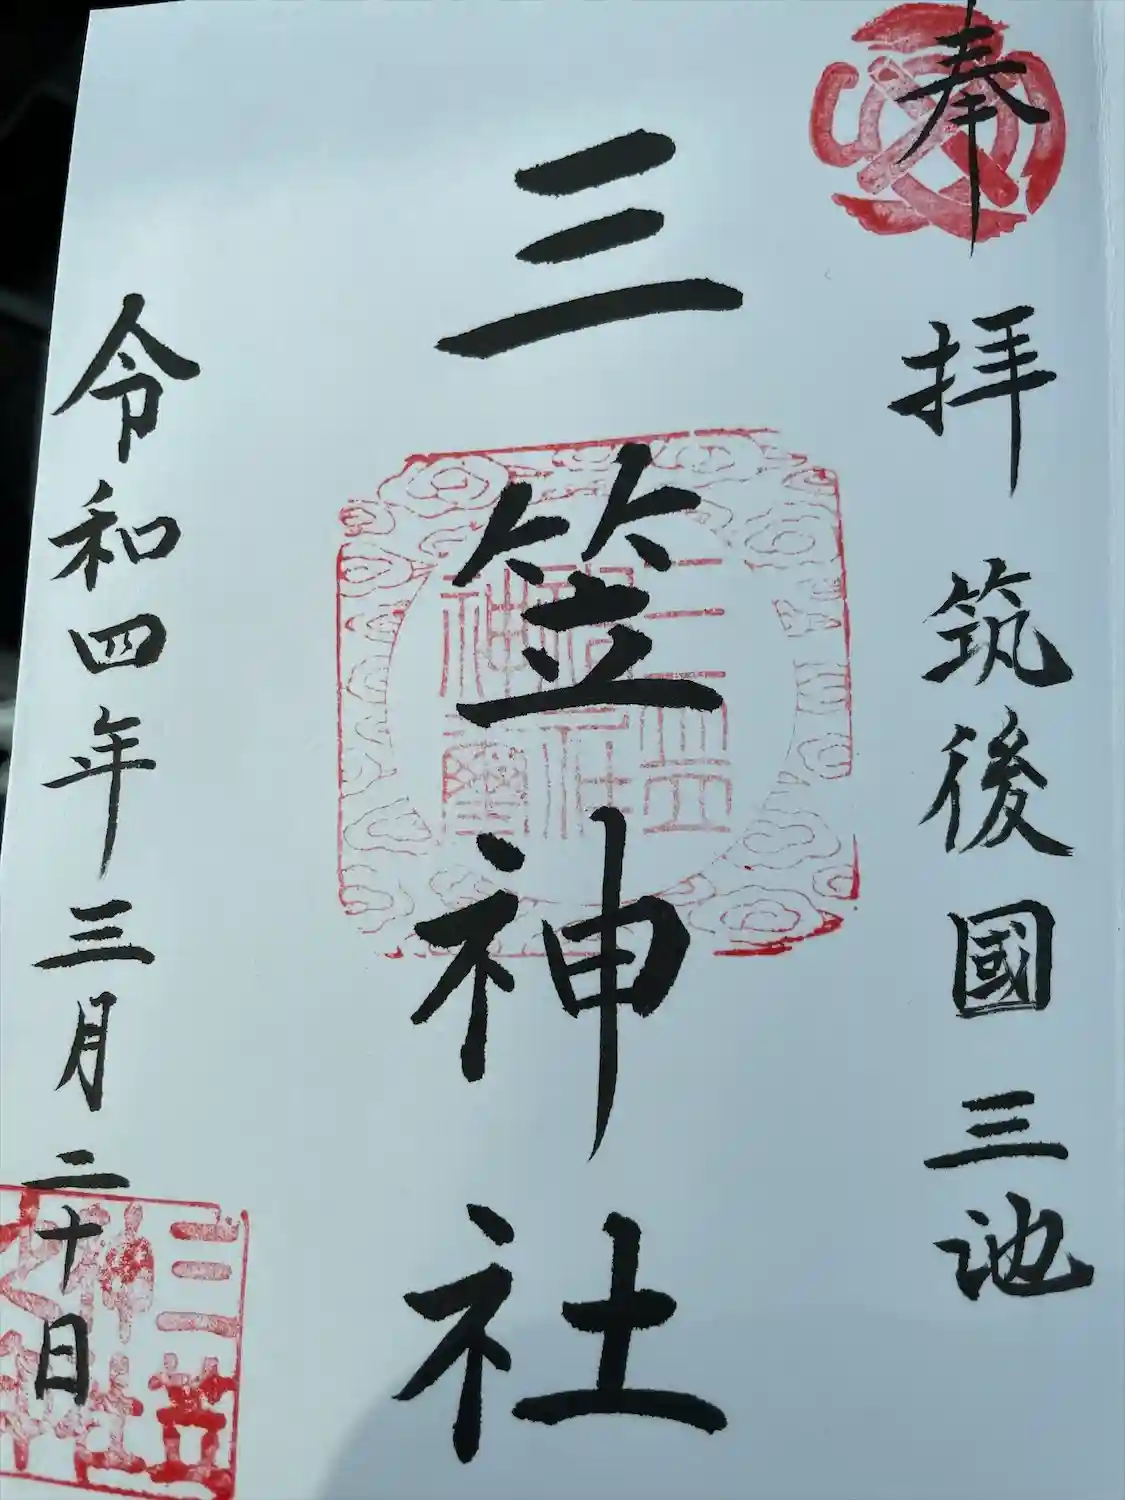 奉拝 筑後國三池
三笠神社
令和四年三月二十日
三笠神社神璽
三笠神社之印